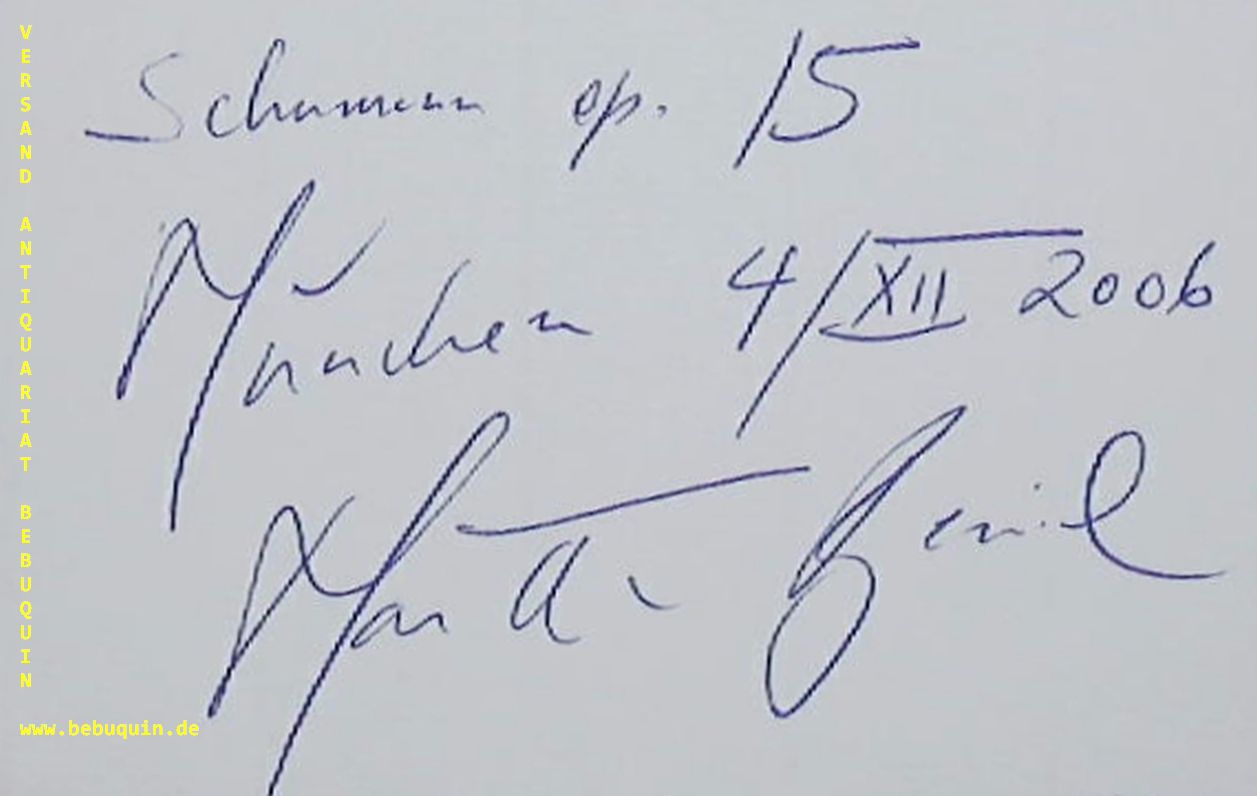 VERSAND ANTIQUARIAT BEBUQUIN
www.bebuquin.de
Schumann op. 15
München 4/XII 2006